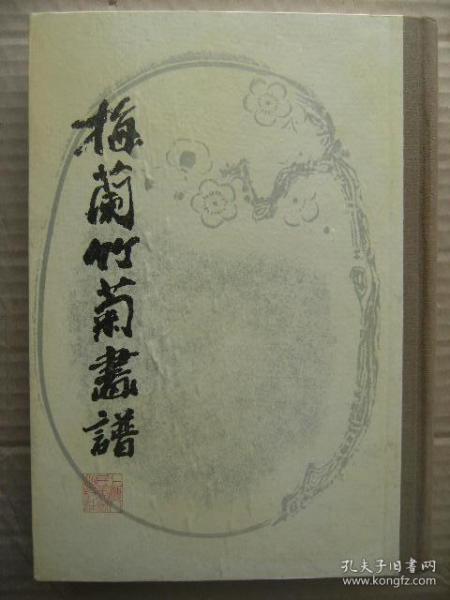 梅蘭竹菊畫譜
孔夫子旧书网
www.kongfz.com